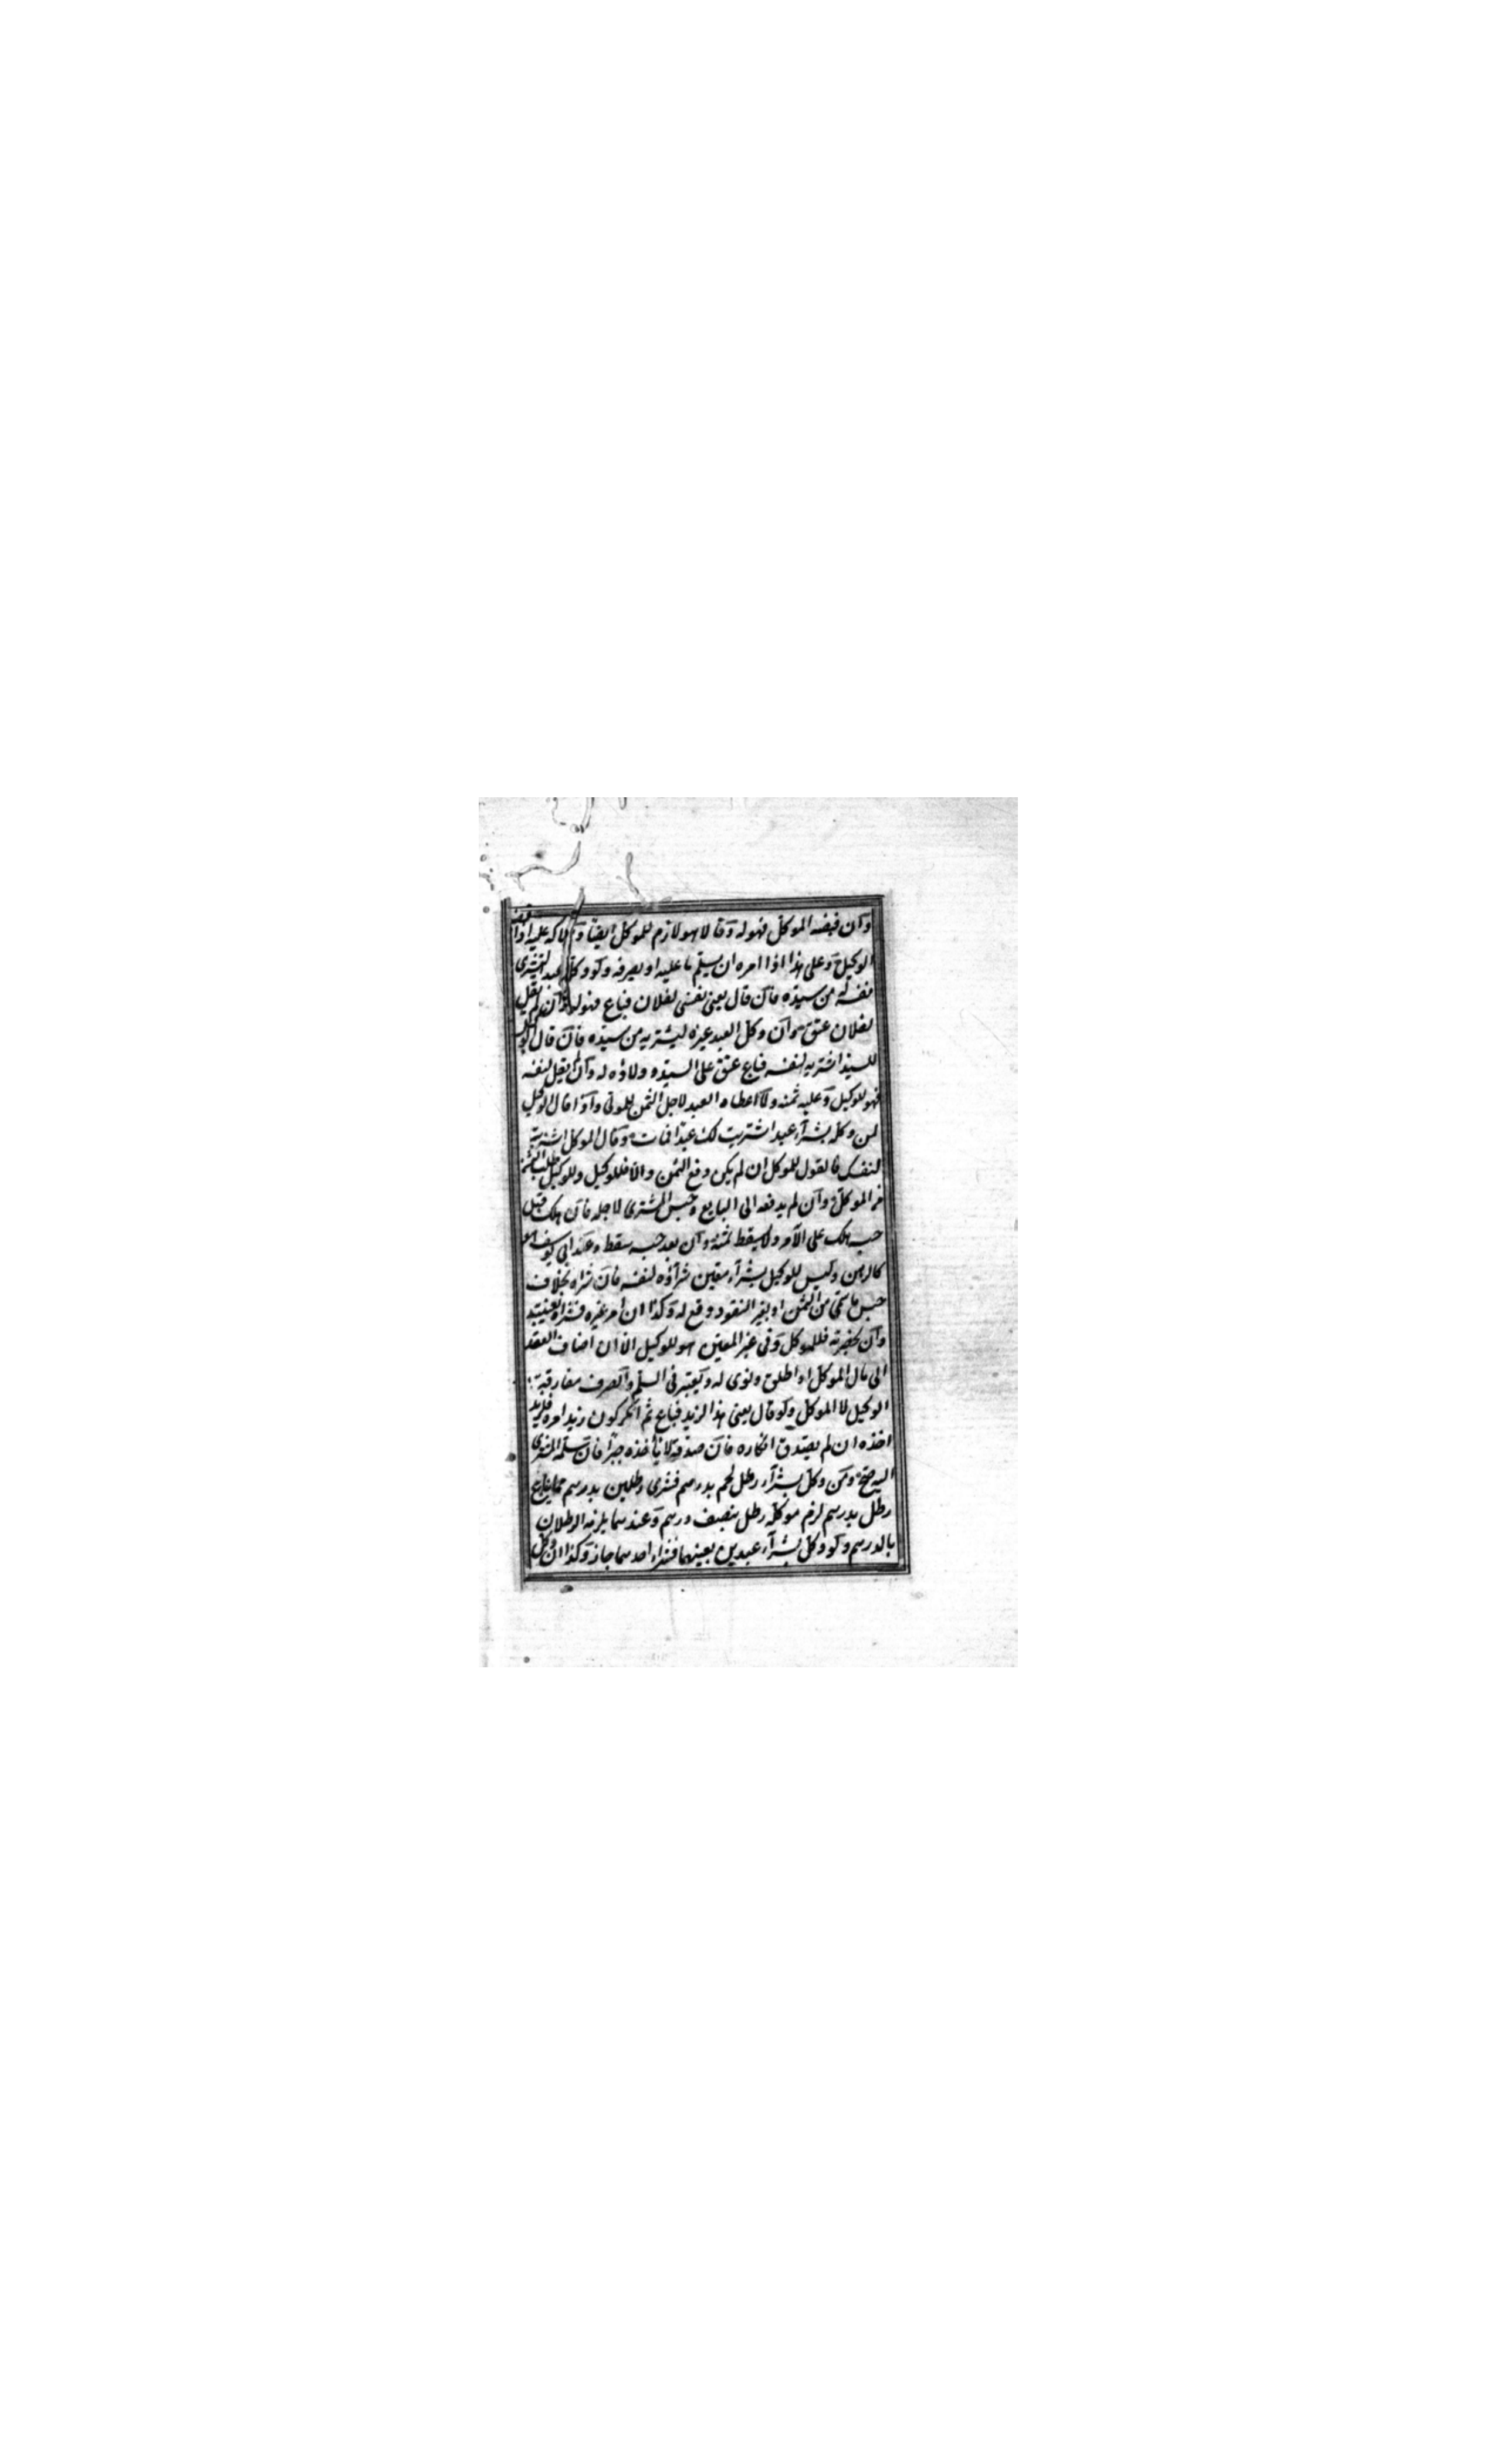 وان قبضه الموكل فهو له وقالا هو لازم للموكل ايضا وهلاكه عليه اذا قبضه
الوكيل وعلى هذا اذا امره ان يسلم ما عليه او يصرفه ولو وكل عبدا ليشترى
نفسه له من سيده فان قال بعنى نفسى لفلان فباع فهو له وان لم يقل
لفلان عتق وان وكل العبد غيره ليشتريه من سيده فان قال الوكيل
للسيد اشتريه لنفسه فباع عتق على السيد وولاؤه له وان لم يقل لنفسه
فهو للوكيل وعليه ثمنه وما اعطاه العبد لاجل الثمن للمولى واذا قال الوكيل
لمن وكله بشرآء عبد اشتريت لك عبدا فمات وقال الموكل اشتريته
لنفسك فالقول للموكل ان لم يكن دفع الثمن والا فللوكيل وللوكيل طلب الثمن
من الموكل وان لم يدفعه الى البايع وحبس المشترى لاجله فان هلك قبل
حبسه هلك على الآمر ولا يسقط ثمنه وان بعد حبسه سقط وعند ابى يوسف هو
كالرهن وليس للوكيل بشرآء معين شرآؤه لنفسه فان شراه بخلاف
جنس ما سمى من الثمن او بغير النقود وقع له وكذا ان امر غيره فشراه بغيبته
وان بحضرته فللموكل وفى غير المعين هو للوكيل الا ان اضاف العقد
الى مال الموكل او اطلق ونوى له ويعتبر فى السلم والصرف مفارقة
الوكيل لا الموكل ولو قال بعنى هذا لزيد فباع ثم انكر كون زيد امره فلزيد
اخذه ان لم يصدق انكاره فان صدقه لا يأخذه جبرا فان سلمه المشترى
اليه صح ومن وكل بشرآء رطل لحم بدرهم فشرى رطلين بدرهم مما يباع
رطل بدرهم لزم موكله رطل بنصف درهم وعندهما يلزمه الرطلان
بالدرهم ولو وكل بشرآء عبدين بعينهما فشراء احدهما جاز وكذا ان وكل